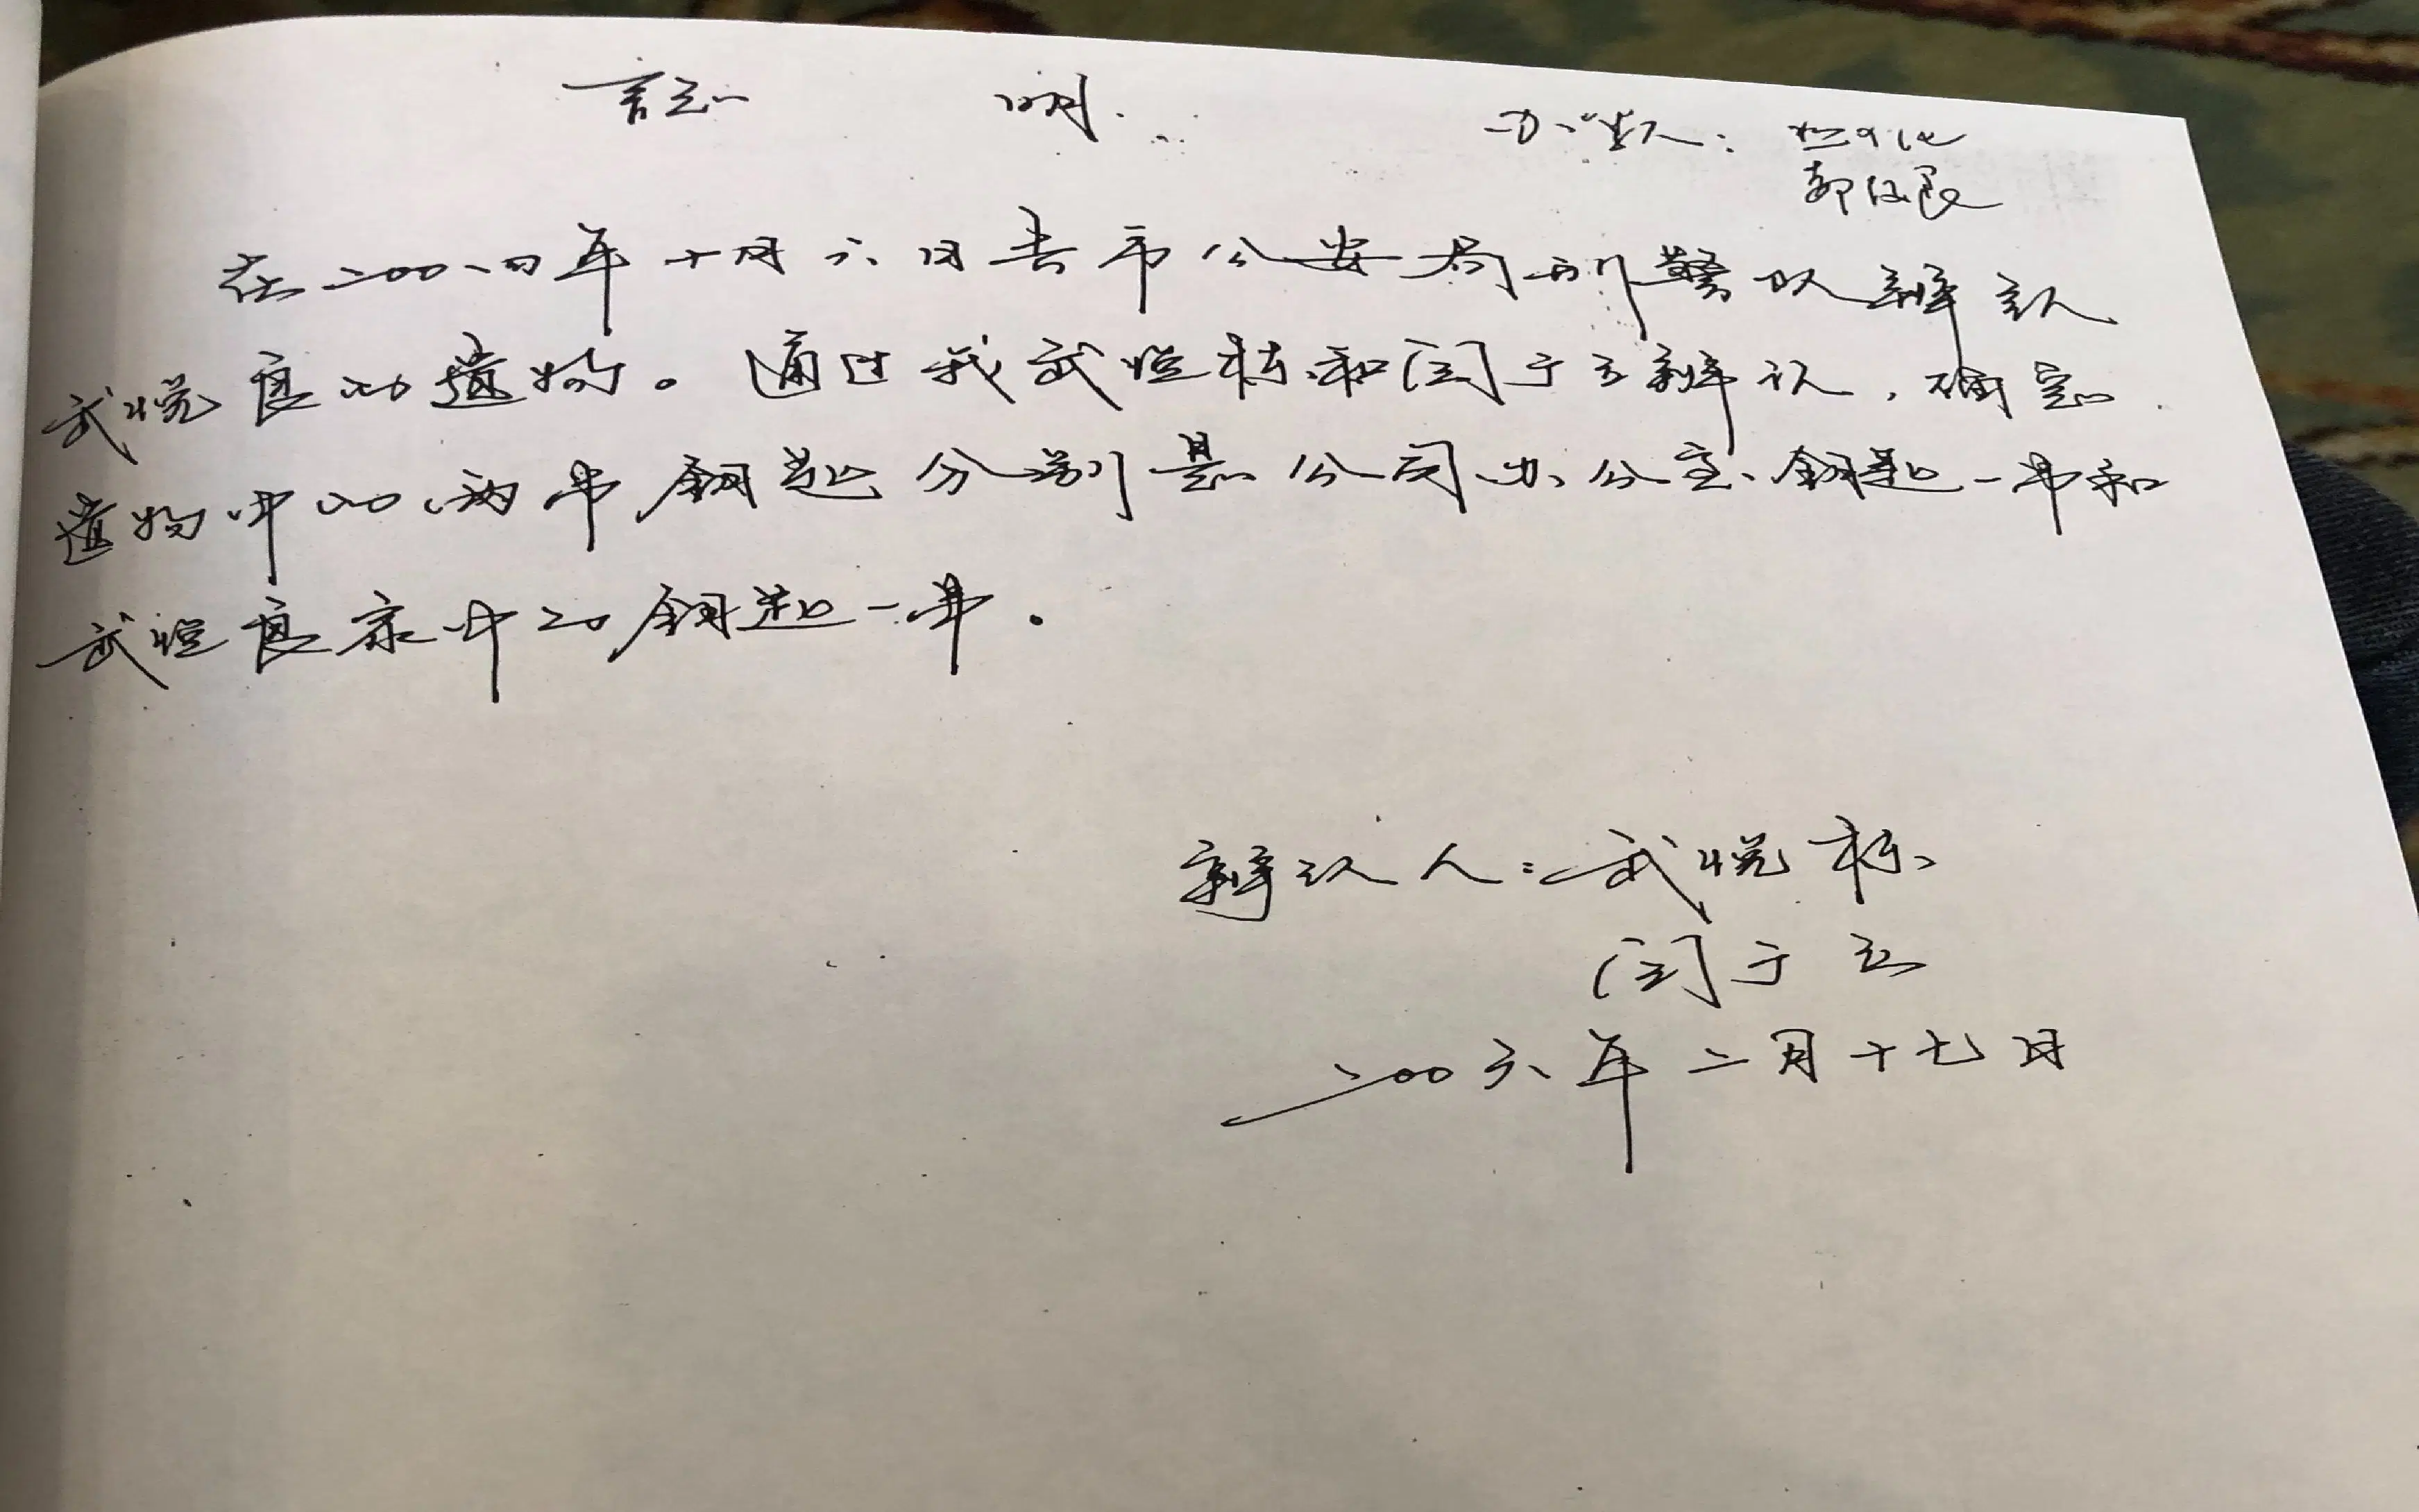 証 明
在二00四年十月六日去市公安局刑警队辨认
武悦良的遗物。通过我武悦栋和闫于玉辨认,确定
遗物中的两串钥匙分别是公司办公室钥匙一串和
武悦良家中的钥匙一串。
辨认人:武悦栋
闫于玉
二00六年二月十七日